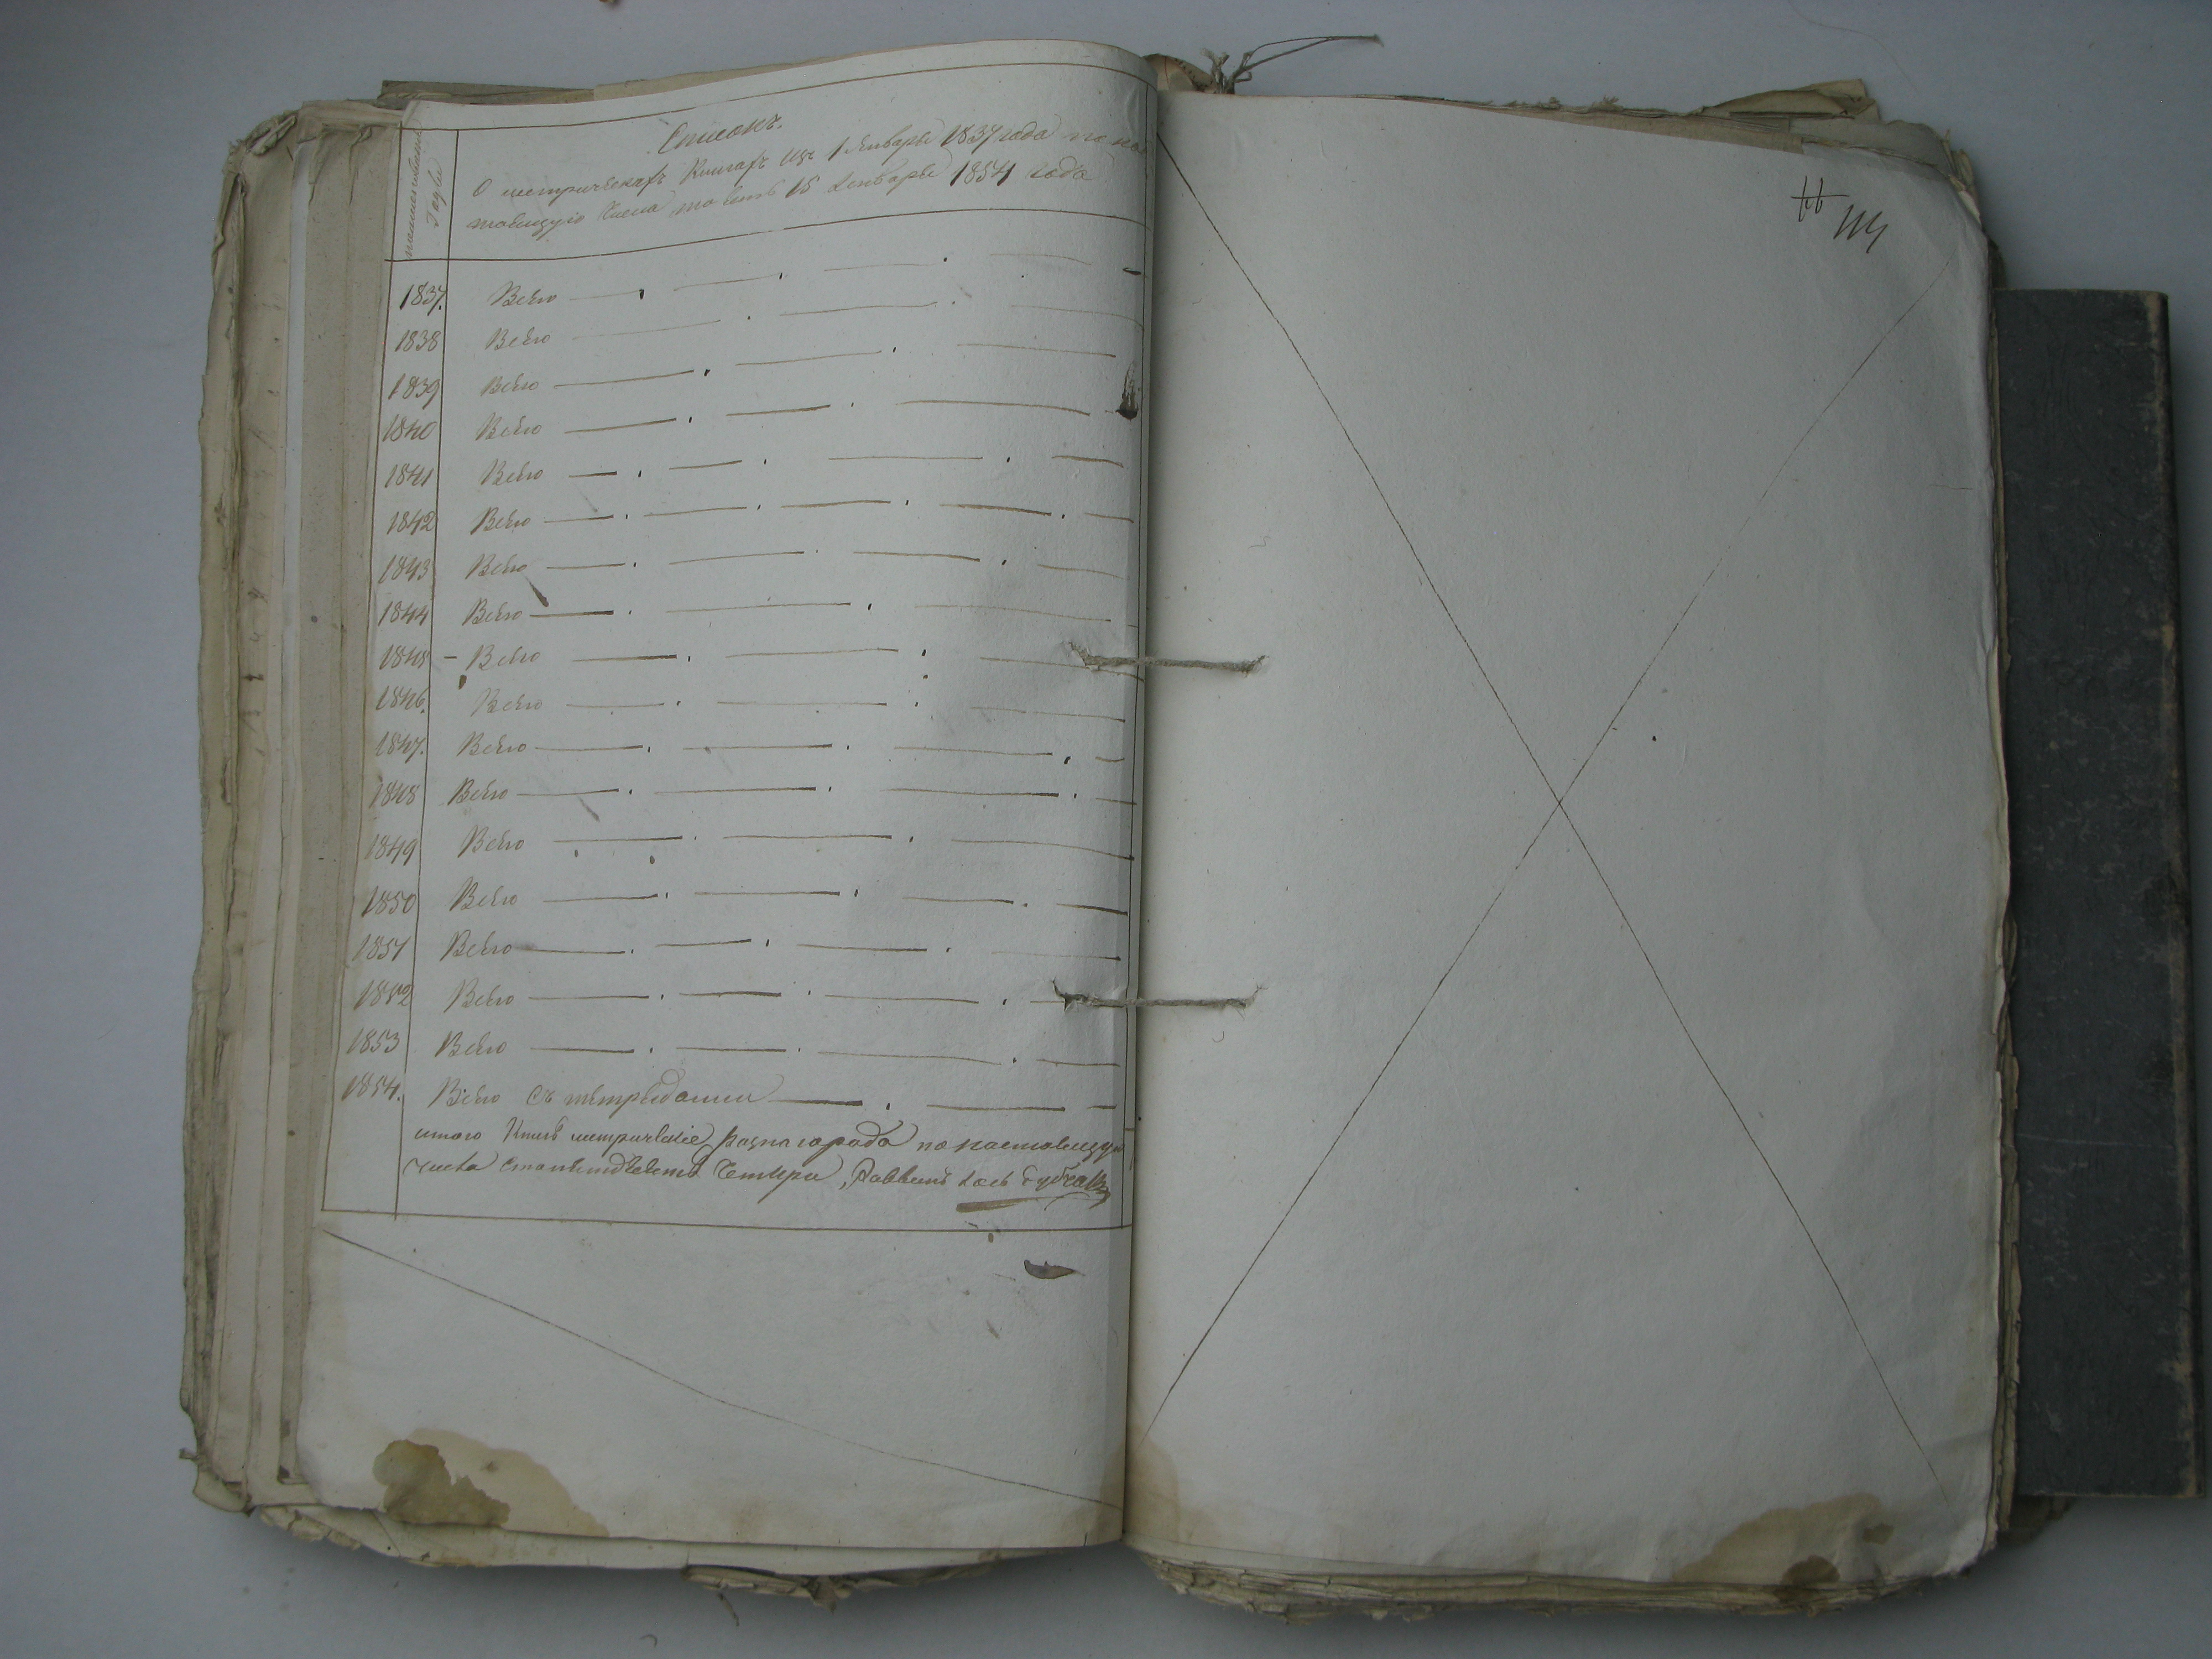 Списокъ.
О метрическахъ Книгахъ Изъ 1 Января 1837 года по на
тоящую Числа то есть 15 Января 1854 года
Годы
1837. Всего
1838 Всего
1839 Всего
1840 Всего
1841 Всего
1842 Всего
1843 Всего
1844 Всего
1845 Всего
1846. Всего
1847. Всего
1848 Всего
1849 Всего
1850 Всего
1851 Всего
1852 Всего
1853 Всего
1854. Всего съ
итого Книгъ метрическіе города по настоящую
числа Четыри, Раввинъ
114